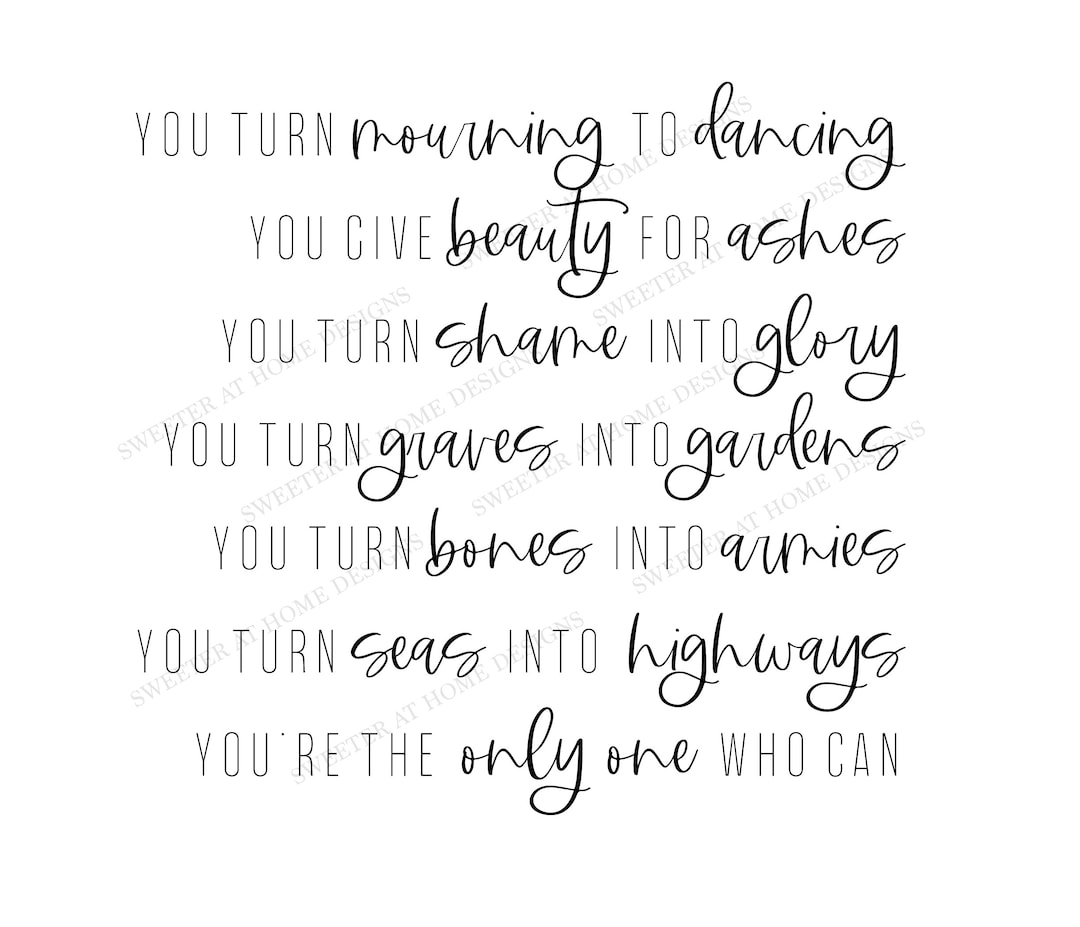 YOU TURN mourning TO dancing
YOU GIVE beauty FOR ashes
YOU TURN shame INTO glory
YOU TURN graves INTO gardens
YOU TURN bones INTO armies
YOU TURN seas INTO highways
YOU'RE THE only one WHO CAN
SWEETER AT HOME DESIGNS
SWEETER AT HOME DESIGNS
SWEETER AT HOME DESIGNS
SWEETER AT HOME DESIGNS
SWEETER AT HOME DESIGNS
SWEETER AT HOME DESIGNS
SWEETER AT HOME DESIGNS
SWEETER AT HOME DESIGNS